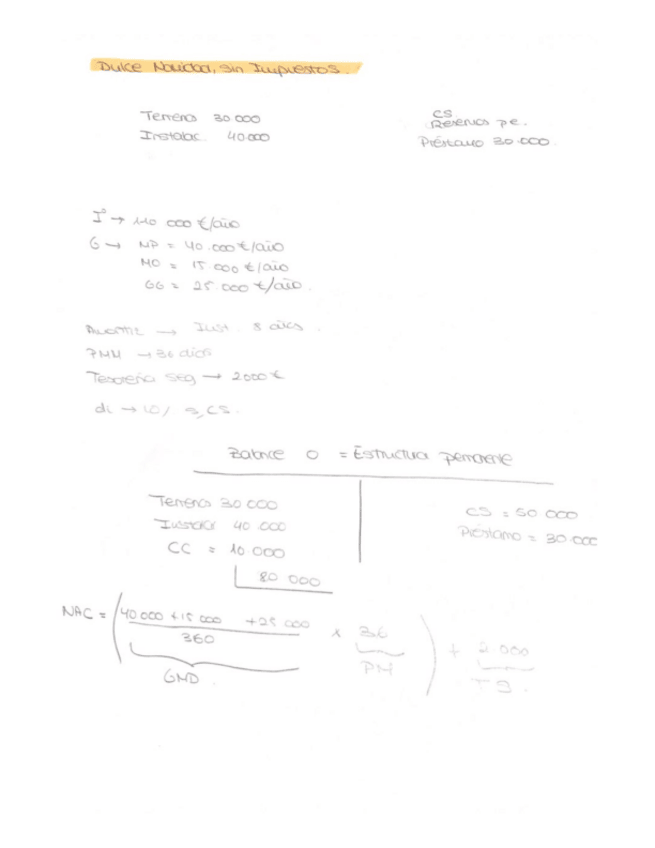 Dulce Navidad, sin Impuestos.
Terreno 30.000
CS
Instalac. 40.000
Reservas pe.
Préstamo 30.000.
Iº → 110 000 €/año
G → MP = 40.000 €/año
MO = 15.000 €/año
GG = 25.000 €/año.
→ Inst. 8 años.
PMM → 36 días
Tesorería seg → 2000 €
CS.
Balance 0 = Estructura permanente
Terreno 30 000
CS = 50 000
Instalac 40 000
Préstamo = 30.000
CC = 10.000
80 000
NAC = ( 40 000 + 15 000 + 25 000 / 360 × 36 ) + 2.000
GMD. PM TS.